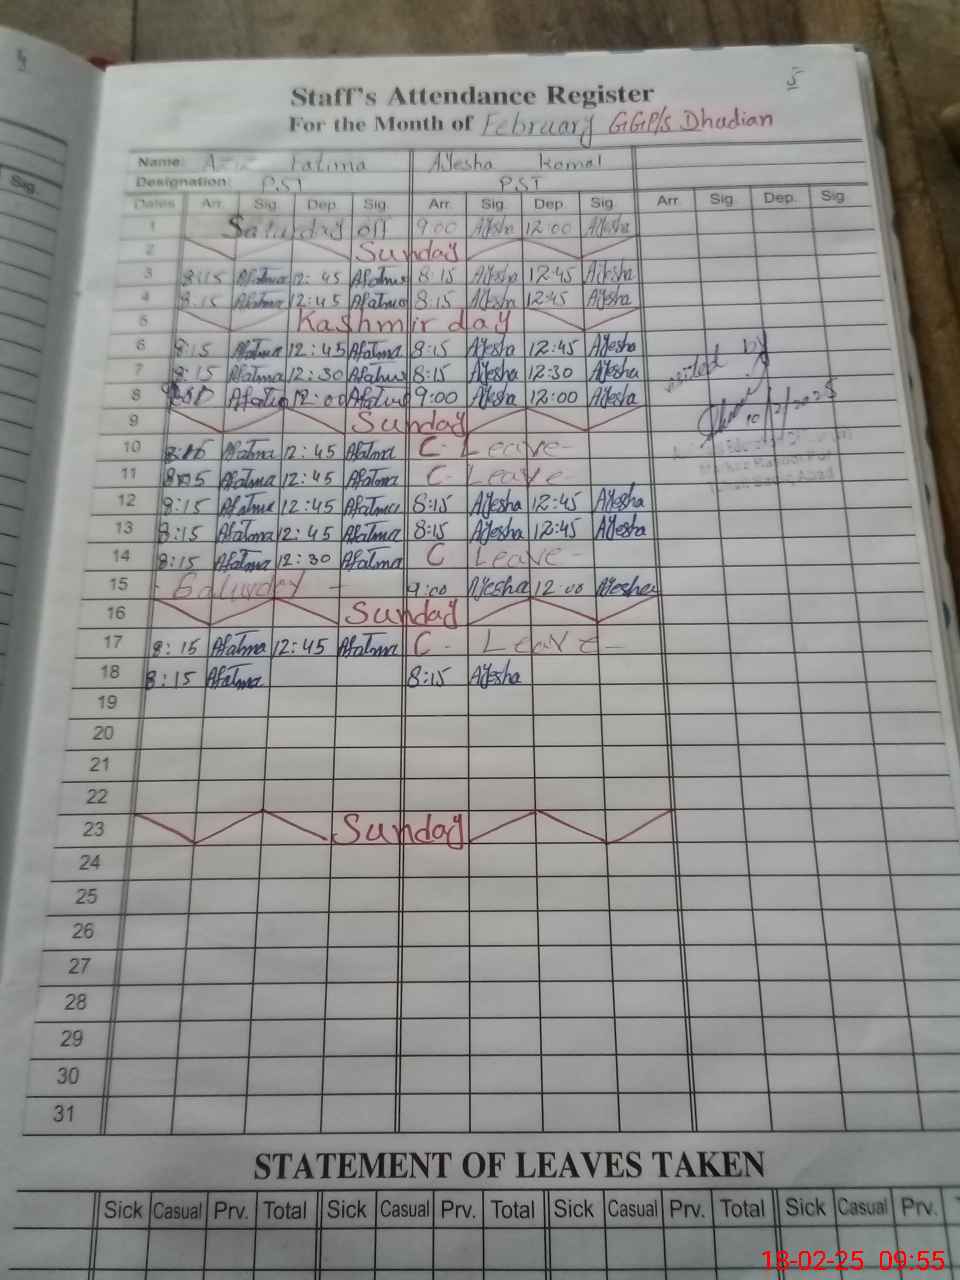 5
Staff's Attendance Register
For the Month of February GGP/s Dhudian
Sig.
Name: Fatima Ayesha Komal
Designation: PST PST
Dates Arr. Sig. Dep. Sig. Arr. Sig. Dep. Sig. Arr. Sig. Dep. Sig.
1 Saturday off 9:00 Ayesha 12:00 Ayesha
2 Sunday
3 8:15 Afatma 12:45 Afatma 8:15 Ayesha 12:45 Ayesha
4 8:15 Afatma 12:45 Afatma 8:15 Ayesha 12:45 Ayesha
5 Kashmir day
6 8:15 Afatma 12:45 Afatma 8:15 Ayesha 12:45 Ayesha
7 8:15 Afatma 12:30 Afatma 8:15 Ayesha 12:30 Ayesha
visited by
8 Afatma 12:00 Afatma 9:00 Ayesha 12:00 Ayesha
10/2/2025
9 Sunday
10 Afatma 12:45 Afatma C- Leave-
11 Afatma 12:45 Afatma C- Leave-
12 8:15 Afatma 12:45 Afatma 8:15 Ayesha 12:45 Ayesha
13 8:15 Afatma 12:45 Afatma 8:15 Ayesha 12:45 Ayesha
14 8:15 Afatma 12:30 Afatma C Leave-
15 - Saturday - 9:00 Ayesha 12:00 Ayesha
16 Sunday
17 8:15 Afatma 12:45 Afatma C- Leave-
18 8:15 Afatma 8:15 Ayesha
19
20
21
22
23 Sunday
24
25
26
27
28
29
30
31
STATEMENT OF LEAVES TAKEN
Sick Casual Prv. Total Sick Casual Prv. Total Sick Casual Prv. Total Sick Casual Prv.
18-02-25 09:55